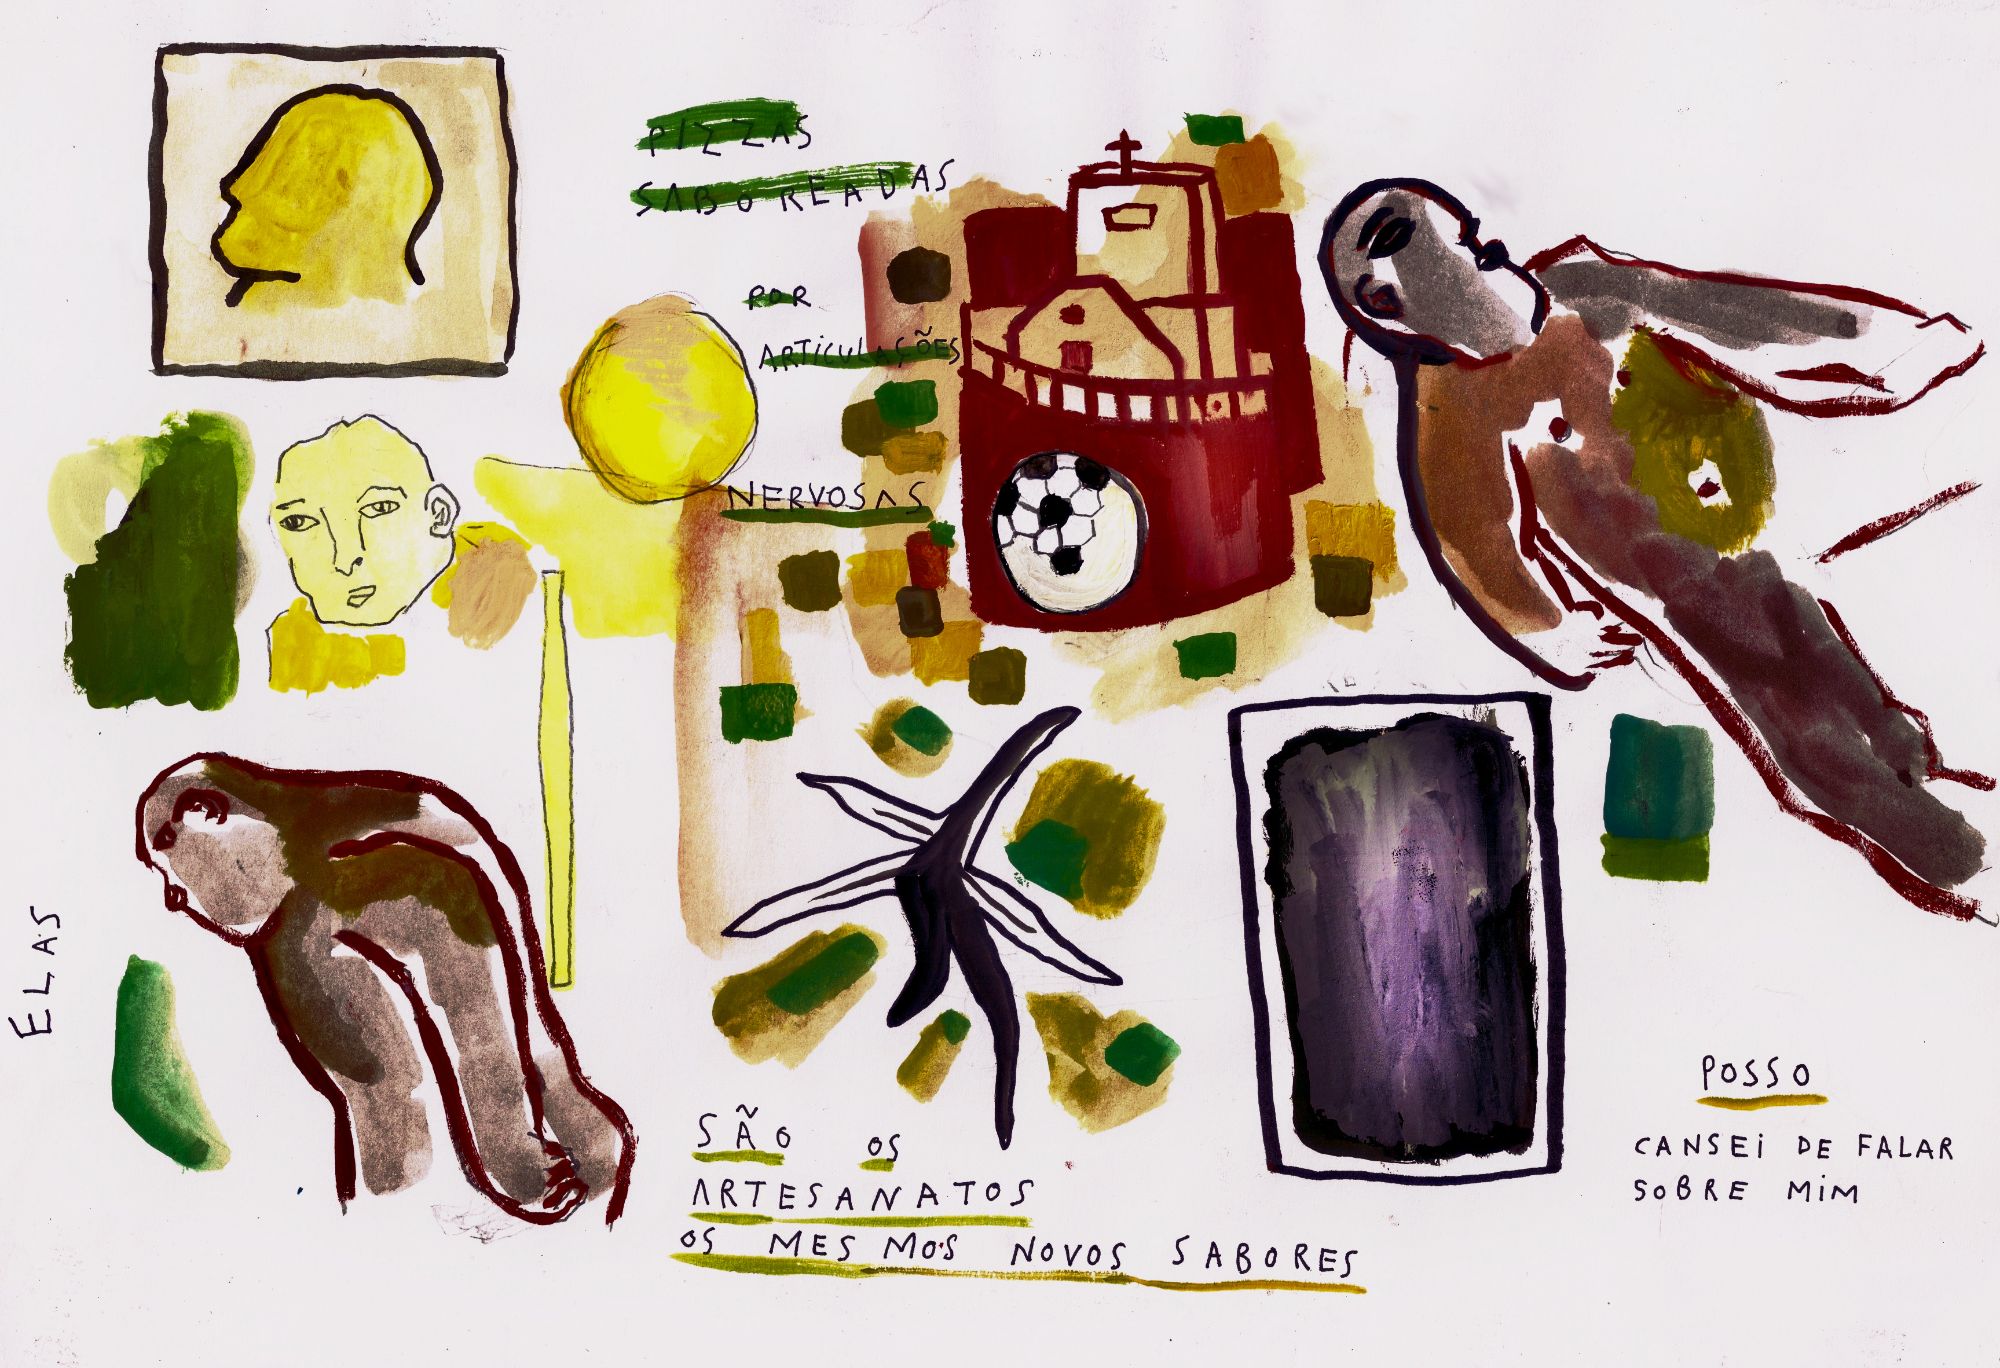 PIZZAS
SABOREADAS
POR
ARTiCULAÇÕES
NERVOSAS
ELAS
SÃO OS
ARTESANATOS
OS MESMOS NOVOS SABORES
POSSO
CANSEi DE FALAR
SOBRE MiM